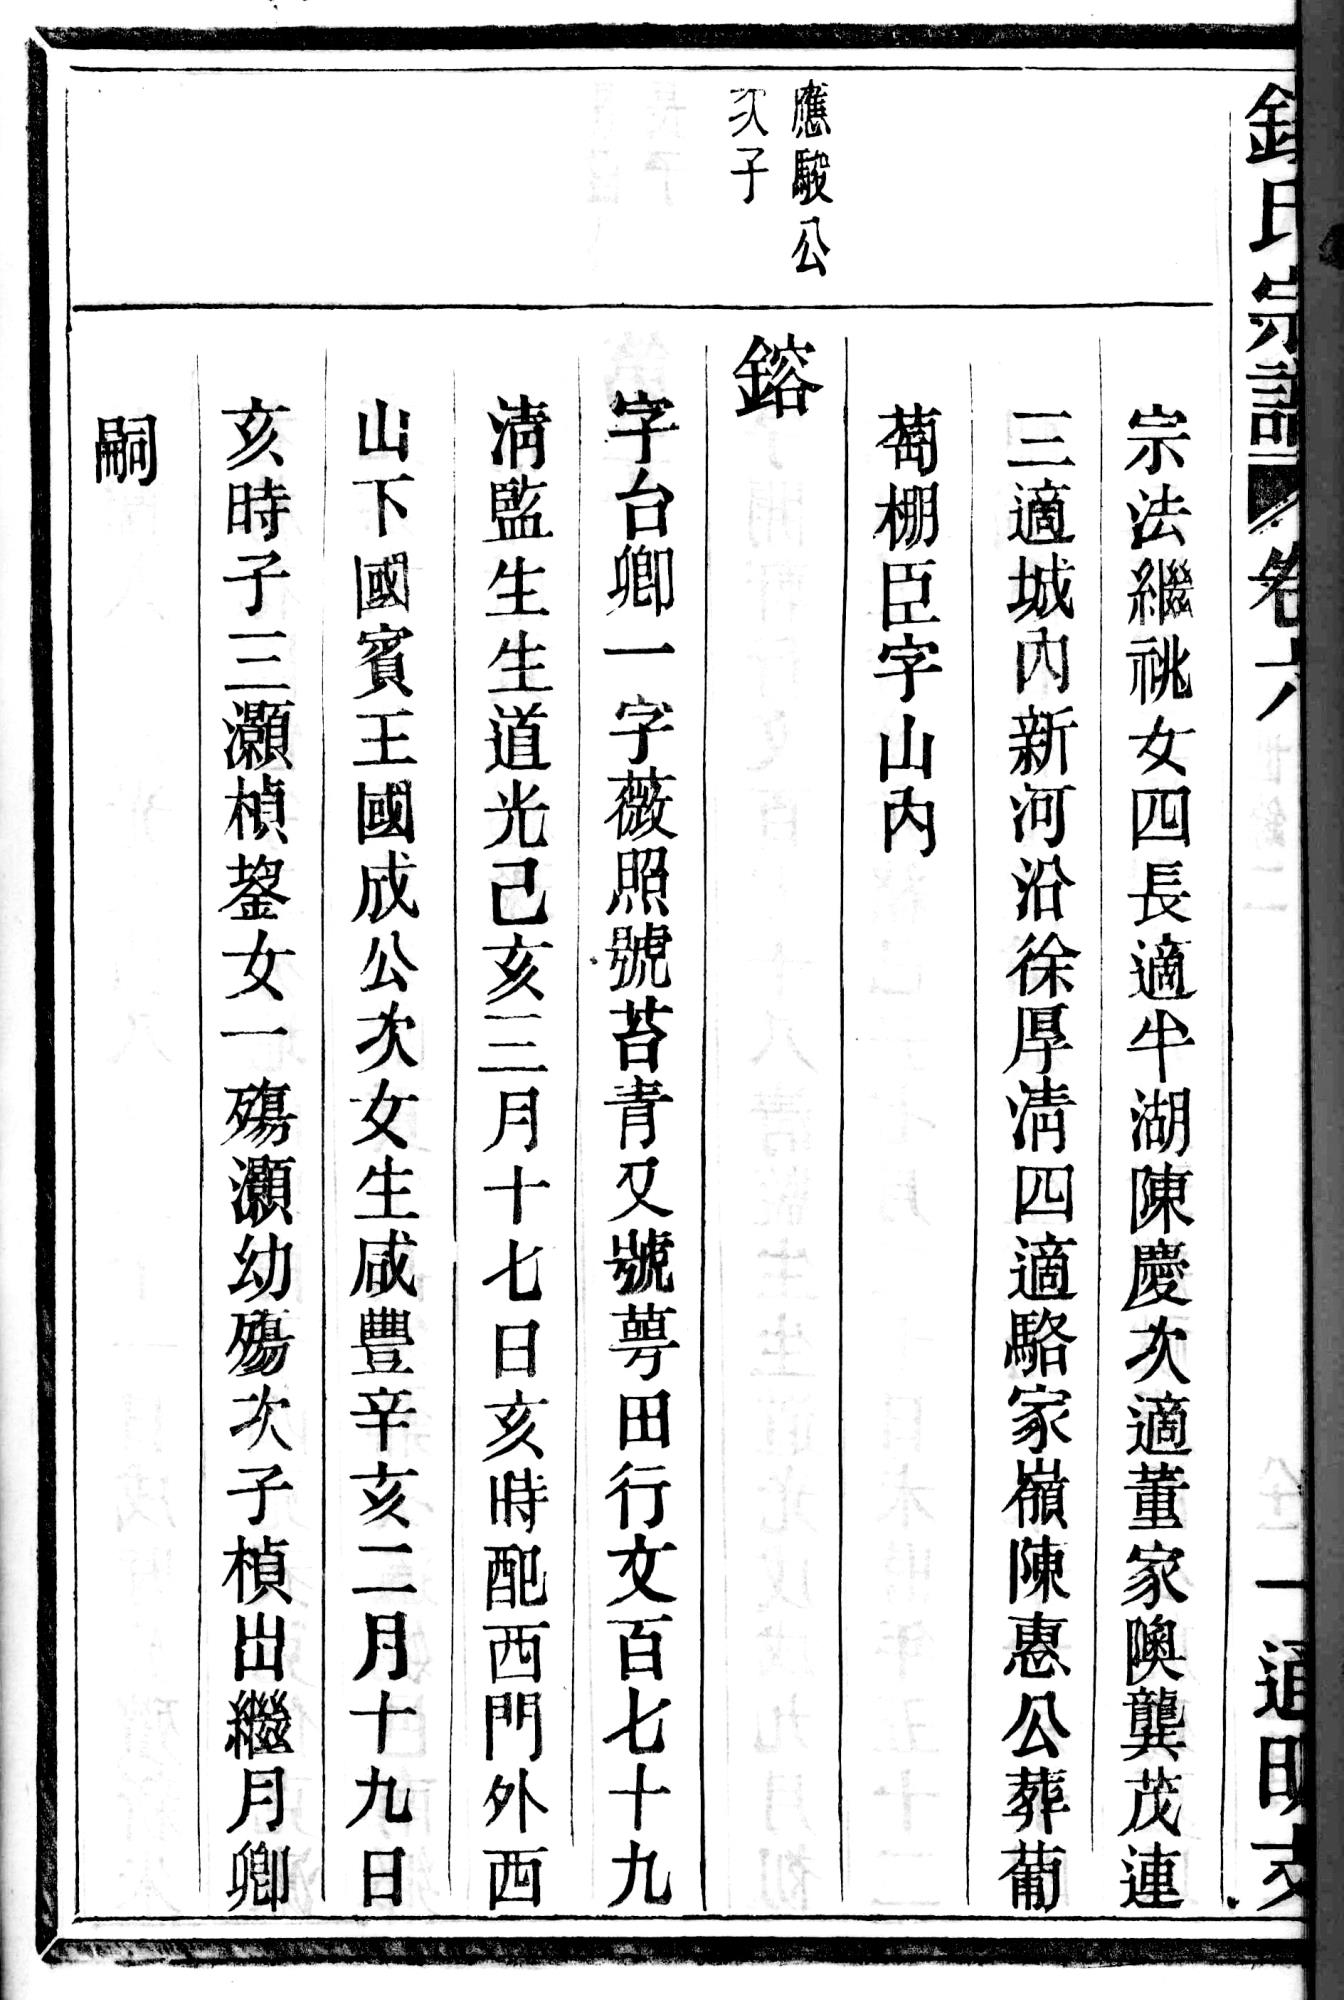 氏宗譜 卷六 一 通明
宗法繼祧女四長適牛湖陳慶次適董家隩龔茂連
三適城內新河沿徐厚淸四適駱家嶺陳惠公葬葡
萄棚臣字山內
應駿公
次子
鎔
字台卿一字薇照號苔青又號萼田行文百七十九
淸監生生道光己亥三月十七日亥時配西門外西
山下國賓王國成公次女生咸豐辛亥二月十九日
亥時子三灝楨鋆女一殤灝幼殤次子楨出繼月卿
嗣